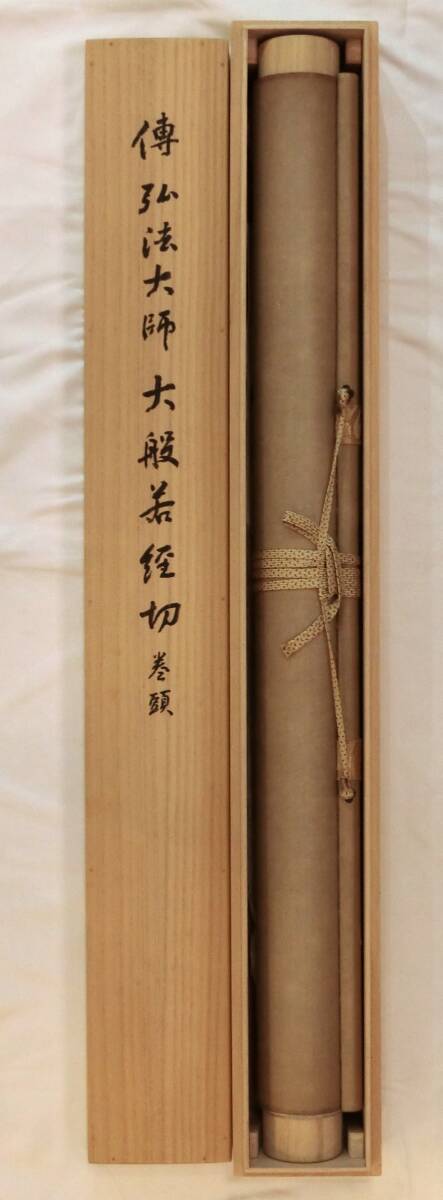 傳弘法大師大般若經切巻頭